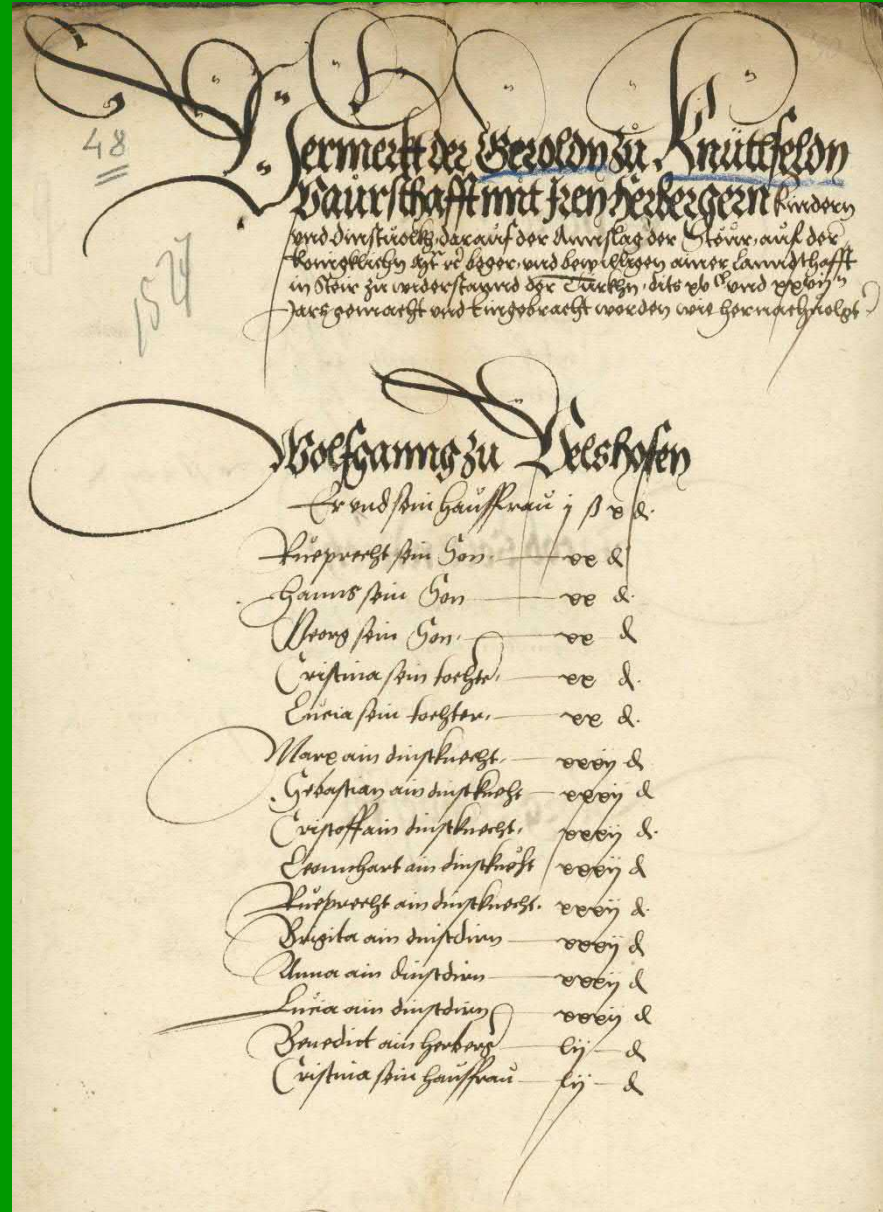 48
1527
Vermerkt der Geroldn zu Knüttlfeldn
Paurschafft mit Iren Herbergern kindern
vnd dinstuolkh darauf der Annslag der Steur auf der
königklichn beger vnd bewilligen ainer lanndschafft
in Steir zu widerstannd der Türkhn dits xvᶜ vnd xxvijⁿ
Jars gemacht vnd eingebracht worden wie hernachuolgt
Wolfganng zu Velshofen
Er vnd sein hausfrau j ß x d.
Rueprecht sein Son xx d
Hanns sein Son xx d.
Georg sein Son xx d
Cristina sein tochter xx d.
Lucia sein tochter xx d.
Marx ain dinstknecht xxxij d
Sebastian ain dinstknecht xxxij d
Cristoff ain dinstknecht xxxij d.
Leonnhart ain dinstknecht xxxij d
Rueprecht ain dinstknecht xxxij d.
Brigita ain dinstdirn xxxij d
Anna ain dinstdirn xxxij d
Lucia ain dinstdirn xxxij d
Benedict ain herberg lij d
Cristina sein hausfrau lij d